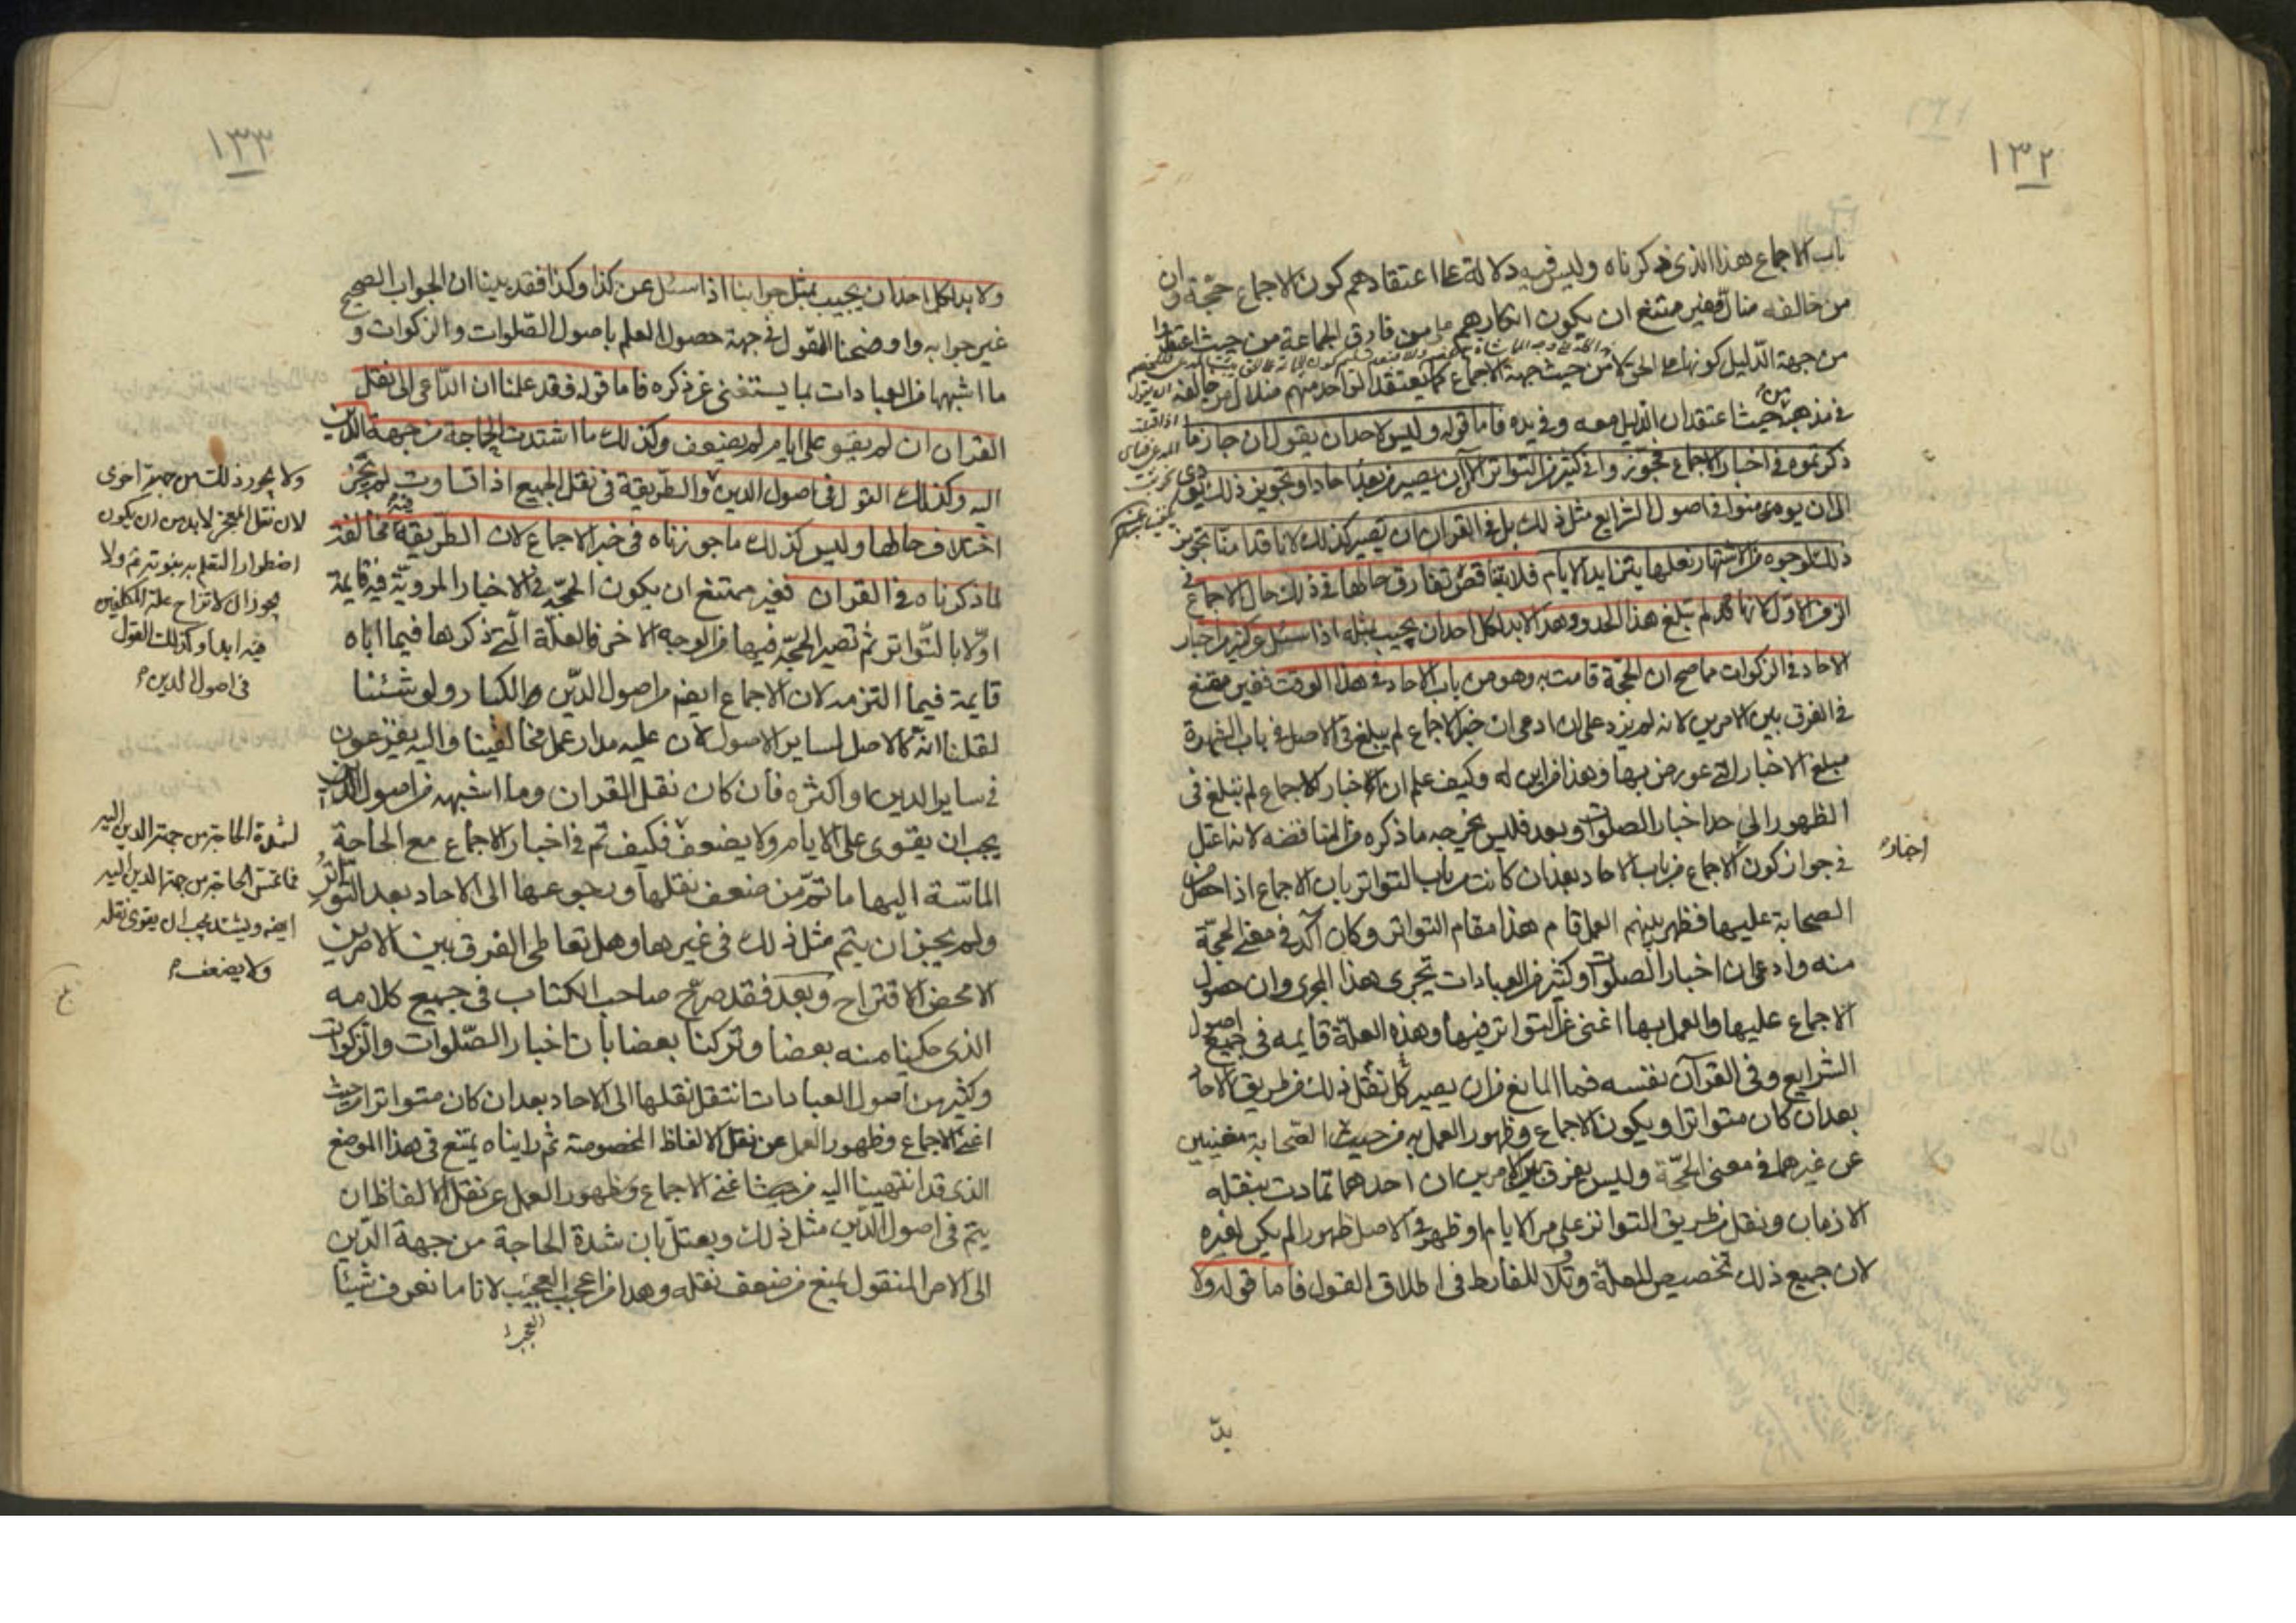 ١٣٢
باب الاجماع هذا الذى ذكرناه وليس فيه دلالة على اعتقادهم كون الاجماع حجّة وان
من خالفه ضال فغير ممتنع ان يكون انكارهم على من فارق الجماعة من حيث اعتقدوا
من جهة الدّليل كونها على الحق لا من حيث جهة الاجماع كما يعتقد الواحد منهم ضلال من خالفه
فى مذهبه من حيث اعتقد ان الدليل معه وفى يده فاما قوله وليس لاحد ان يقول ان جاز ما
ذكرتموه فى اخبار الاجماع فجوّزوا فى كثير من التواتر الآن ان يصير من بعد احادا وتجويز ذلك يؤدى
الى ان يومنوا فى اصول الشرايع مثل ذلك بل فى القران ان يصير كذلك لانا قد امنّا تجويز
ذلك لوجوه من الاشتهار نعلها يتزايد الايام فلا يتناقص تفارق حالها فى ذلك حال الاجماع فى
الزمن الاوّل لانها لم تبلغ هذا الحد وهذا لابد لكل احد ان يجيب بمثله اذا سئل وكثير من اخبار
الاحاد فى الزكوات مما صح ان الحجّة قامت به وهو من باب الاحاد فى هذا الوقت فغير مقنع
فى الفرق بين الامرين لانه لم يزد على ان ادعى ان خبر الاجماع لم يبلغ فى الاصل فى باب الشهرة
مبلغ الاخبار التى عورض بها وهذا من اين له وكيف علم ان اخبار الاجماع لم تبلغ فى
الظهور الى حد اخبار الصلوات وبعد فليس يخرجه ما ذكره من المناقضه لانه اعتل
فى جواز كون الاجماع من باب الاحاد بعد ان كانت من باب التواتر بان الاجماع اذا حصل من
اخبار
الصحابة عليها فظهر بينهم العمل قام هذا مقام التواتر وكان آكد فى معنى الحجّة
منه وادعى ان اخبار الصلوات وكثير من العبادات تجرى هذا المجرى وان حصول
الاجماع عليها والعمل بها اغنى عن التواتر فيها وهذه العلّة قايمه فى جميع اصول
الشرايع وفى القرآن نفسه فما المانع من ان يصير كل نقل ذلك من طريق الاحاد
بعد ان كان متواترا ويكون الاجماع وظهور العمل به من حيث الصّحابة مغنيين
عن غيرهما فى معنى الحجّة وليس يفرق بين الامرين ان احدهما تمادت بنقله
الازمان ونقل من طريق التواتر على مر الايام او ظهر فى الاصل ظهورا لم يكن لغيره
لان جميع ذلك تخصيص للعلّة وتلاف للفارط فى اطلاق القول فاما قوله ولا
بدّ
١٣٣
ولا بد لكل احد ان يجيب بمثل جوابنا اذا سئل عن كذا وكذا فقد بينا ان الجواب الصحيح
غير جوابه واوضحنا القول فى جهة حصول العلم باصول الصّلوات والزكوات و
ما اشبهها من العبادات بما يستغنى عن ذكره فاما قوله فقد علمنا ان الدّاعى الى نقل
القران ان لم يقو على ايام لم يضعف وكذلك ما اشتدت الحاجة من جهة الدّين
اليه وكذلك القول فى اصول الدين والطّريقة فى نقل الجميع اذا تساوت لم يجز
اختلاف حالها وليس كذلك ما جوزناه فى خبر الاجماع لان الطريقة فيه مخالفة
لما ذكرناه فى القران فغير ممتنع ان يكون الحجّة فى الاخبار المرويّة فيه قايمة
اوّلا بالتّواتر ثم تصير الحجّة فيها من الوجه الاخر فالعلّة الّتى ذكرها فيما اباه
قايمة فيما التزمه لان الاجماع ايضم من اصول الدّين والكبار ولو شئنا
لقلنا انه كالاصل لساير الاصول لان عليه مدار عمل مخالفينا واليه يفزعون
فى ساير الدين او اكثره فان كان نقل القران وما اشبهه من اصول الدين
يجب ان يقوى على الايام ولا يضعف فكيف تم فى اخبار الاجماع مع الحاجة
الماسّة اليها ما تمّ من ضعف نقلها ورجوعها الى الاحاد بعد التواتر
ولم يجز ان يتم مثل ذلك فى غيرها وهل تعاطى الفرق بين الامرين
الا محض الاقتراح وبعد فقد صرّح صاحب الكتاب فى جميع كلامه
الذى حكينا منه بعضا وتركنا بعضا بان اخبار الصّلوات والزكوات
وكثير من اصول العبادات انتقل نقلها الى الاحاد بعد ان كان متواترا من حيث
اغنى الاجماع وظهور العمل عن نقل الالفاظ المخصوصة ثم رايناه يمتنع فى هذا الموضع
الذى قد انتهينا اليه من حيث اغنى الاجماع وظهور العمل عن نقل الالفاظ ان
يتم فى اصول الدّين مثل ذلك ويعتلّ بان شدة الحاجة من جهة الدّين
الى الامر المنقول يمنع من ضعف نقله وهذا من اعجب العجيب لانا ما نعرف شيئا
العجب
ولا يجوز ذلك من جهة اخرى
لان نقل المعجز لا بد من ان يكون
اضطرار التعلم به نبوته ثم ولا
يجوز ان لا تزاح علة المكلفين
فيه ابدا وكذلك القول
فى اصول الدين
لشدة الحاجة من جهة الدين اليه
فما تمس الحاجة من جهة الدين اليه
ايضم ويشتد يجب ان يقوى نقله
ولا يضعف